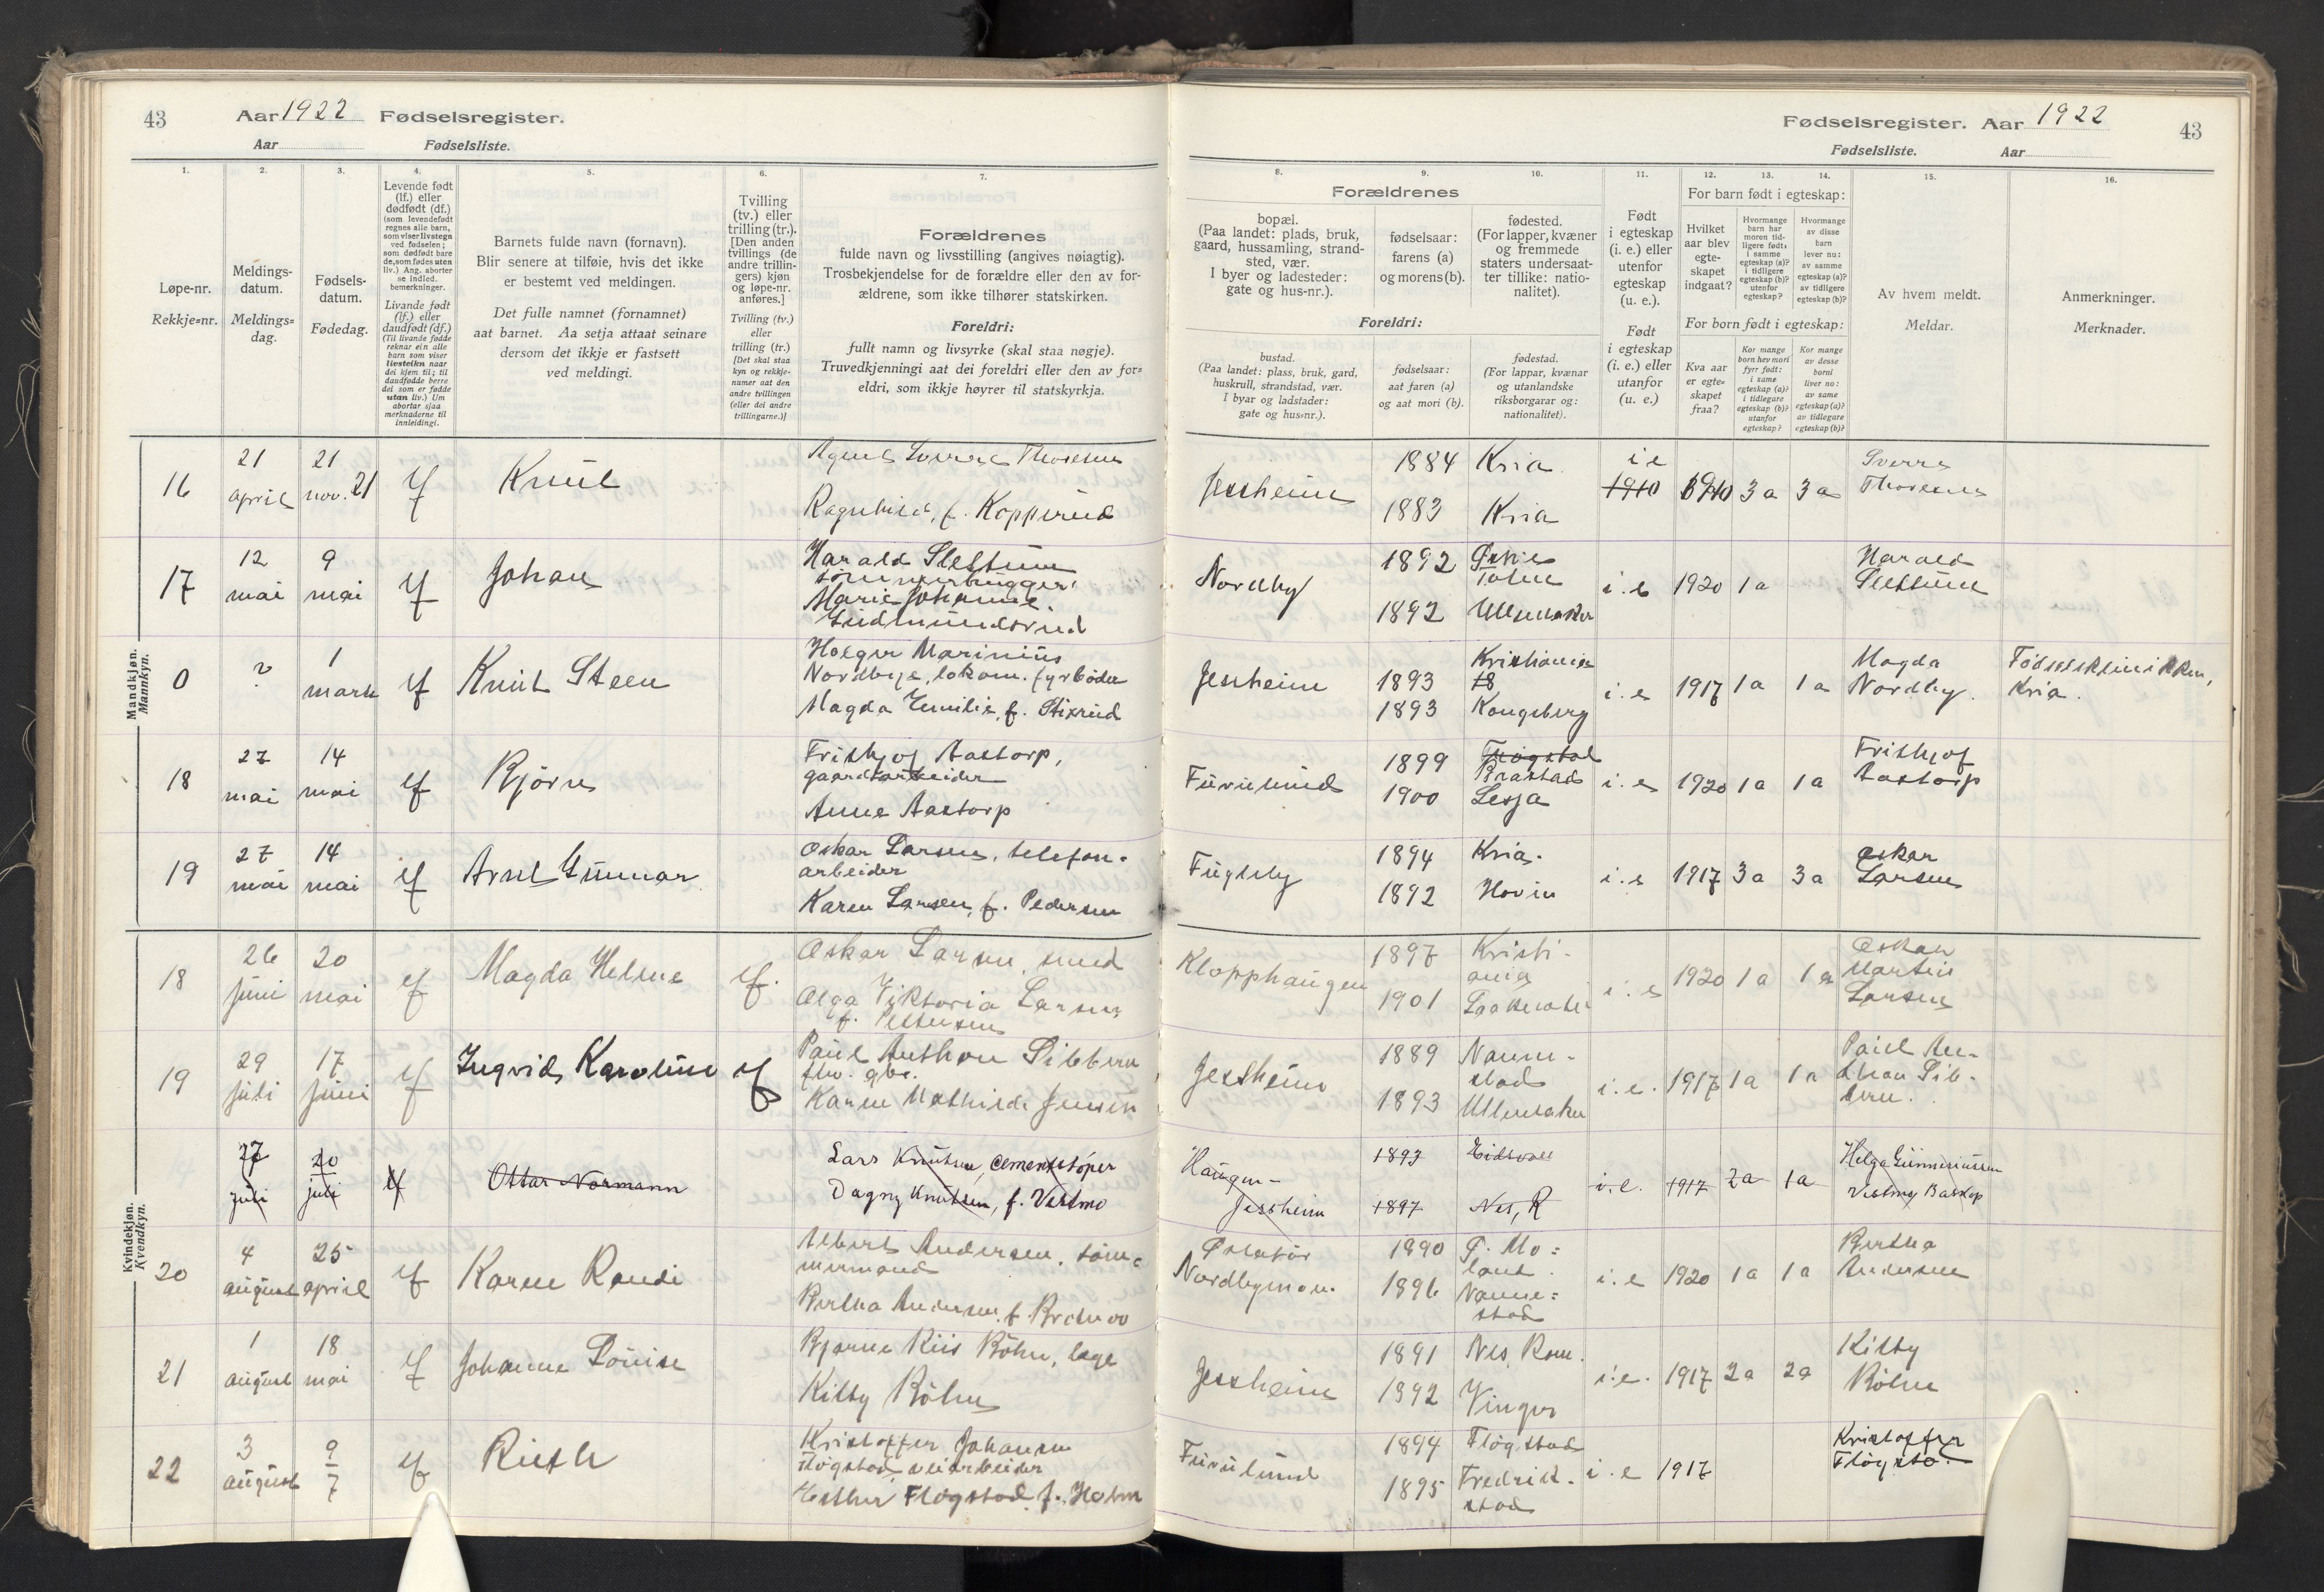 43
Aar 1922 Fødselsregister.
Aar Fødselsliste.
1. 2. 3. 4. 5. 6. 7.
Løpe-nr.
Rekkje=nr.
Meldings-
datum.
Meldings=
dag.
Fødsels-
datum.
Fødedag.
Levende født
(lf.) eller
dødfødt (df.)
(som levendefødt
regnes alle barn,
som viser livstegn
ved fødselen;
som dødfødt bare
de, som fødes uten
liv.) Ang. aborter
se indled.
bemerkninger.
Livande født
(lf.) eller
daudfødt (df.)
(Til livande fødde
reknar ein alle
barn som viser
livsteikn naar
dei kjem til; til
daudfødde berre
dei som er fødde
utan liv.) Um
abortar sjaa
merknaderne til
innleidingi.
Barnets fulde navn (fornavn).
Blir senere at tilføie, hvis det ikke
er bestemt ved meldingen.
Det fulle namnet (fornamnet)
aat barnet. Aa setja attaat seinare
dersom det ikkje er fastsett
ved meldingi.
Tvilling
(tv.) eller
trilling (tr.).
[Den anden
tvillings (de
andre trillin-
gers) kjøn
og løpe-nr.
anføres.]
Tvilling (tv.)
eller
trilling (tr.)
[Det skal staa
kyn og rekkje-
numer aat den
andre tvillingen
(eller dei andre
trillingarne.)]
Forældrenes
fulde navn og livsstilling (angives nøiagtig).
Trosbekjendelse for de forældre eller den av for-
ældrene, som ikke tilhører statskirken.
Foreldri:
fullt namn og livsyrke (skal staa nøgje).
Truvedkjenningi aat dei foreldri eller den av for=
eldri, som ikkje høyrer til statskyrkja.
Mandkjøn.
Mannkyn.
16
21
april
21
nov. 21
lf
Knut
Sverre Thoresen
Ragnhild, f. Kopperud
17
12
mai
9
mai
lf
Johan
Harald Slettum
tømmerhugger,
Marie Johanne
Gudmundsrud
0
?
1
mars
lf
Knut Steen
Holger Marinius
Nordbye, lokom. fyrbøder
Magda Emilie, f. Stixrud
18
27
mai
14
mai
lf
Bjørn
Frithjof Aastorp,
gaardsarbeider
Anne Aastorp
19
27
mai
14
mai
lf
Arnt Gunnar
Oskar Larsen, telefon-
arbeider
Karen Larsen, f. Pedersen
Kvindekjøn.
Kvendkyn.
18
26
juni
20
mai
lf
Magda Helene
lf.
Oskar Larsen, smed
Olga Viktoria Larsen
f. Pettersen
19
29
juli
17
juni
lf
Ingrid Karoline
lf
Paul Anthon Sibbern
Karen Mathilde Jensen
27
juli
20
juli
lf
Ottar Normann
Lars Knutsen, cementstøper
Dagny Knutsen, f. Vestmo
20
4
august
25
april
lf
Karen Randi
Albert Andersen, tøm-
mermand
Bertha Andersen, f.
21
1
august
18
mai
lf
Johanne Louise
Bjarne Kiis Bøhn, læge
Kitty Bøhn
22
3
august
9
7
lf
Ruth
Kristoffer Johansen
Fløgstad, veiarbeider
Esther Fløgstad f. Holm
Fødselsregister. Aar 1922
43
Fødselsliste. Aar
8. 9. 10. 11. 12. 13. 14. 15. 16.
Forældrenes
bopæl.
(Paa landet: plads, bruk,
gaard, hussamling, strand-
sted, vær.
I byer og ladesteder:
gate og hus-nr.).
fødselsaar:
farens (a)
og morens (b).
fødested.
(For lapper, kvæner
og fremmede
staters undersaat-
ter tillike: natio-
nalitet).
Foreldri:
bustad.
(Paa landet: plass, bruk, gard,
huskrull, strandstad, vær.
I byar og ladstader:
gate og hus=nr.).
fødselsaar:
aat faren (a)
og aat mori (b).
fødestad.
(For lappar, kvænar
og utanlandske
riksborgarar og:
nationalitet).
Født
i egteskap
(i. e.) eller
utenfor
egteskap
(u. e.).
Født
i egteskap
(i. e.) eller
utanfor
(u. e.)
For barn født i egteskap:
Hvilket
aar blev
egte-
skapet
indgaat?
Hvormange
barn har
moren tid-
ligere født:
i samme
egteskap (a)?
i tidligere
egteskap (b)?
utenfor
egteskap?
Hvormange
av disse
barn
lever nu:
av samme
egteskap (a)?
av tidligere
egteskap (b)?
For born født i egteskap:
Kva aar
er egte=
skapet
fraa?
Kor mange
born hev mori
fyrr født:
i same
egteskap (a)?
i tidlegare
egteskap (b)?
utanfor
egteskap?
Kor mange
av desse
borni
liver no:
av same
egteskap (a)?
av tidlegare
egteskap (b)?
Av hvem meldt.
Meldar.
Anmerkninger.
Merknader.
Jessheim
1884
1883
Kria
Kria
i e
1910
1910
3 a
3 a
Sverre
Thoresen
Nordby
1892
1892
Østre
Toten
Ullensaker
i. e
1920
1 a
Harald
Slettum
Jessheim
1893
1893
Kristiania
Kongsberg
i. e
1917
1 a
1 a
Magda
Nordby.
Fødselsklinikken,
Kria.
Furulund
1899
1900
Fløgstad
Brastad
Lesja
i. e
1920
1 a
1 a
Frithjof
Aastorp
Fugleby
1894
1892
Kria.
Hovin
i. e
1917
3 a
3 a
Oskar
Larsen
Klopphaugen
1897
1901
Kristi-
ania
i. e
1920
1 a
1 a
Oskar
Martin
Larsen
Jessheim
1889
1893
Nanne-
stad
Ullensaker
i. e.
1917
1 a
1 a
Paul An-
thon Sib-
bern.
Haugen-
Jessheim
1893
1897
Eidsvoll
Nes, R
i. e.
1917
2 a
1 a
Helga Gunneriussen
Nordbymoen.
1890
1896
Ø. Mo=
land.
Nanne=
stad
i. e
1920
1 a
1 a
Bertha
Andersen
Jessheim
1891
1892
Nes, Rom.
Vinger
i. e.
1917
2 a
2 a
Kitty
Bøhn
Furulund
1894
1895
Fløgstad
Fredrik-
stad
i. e
1917
Kristoffer
Fløgstad